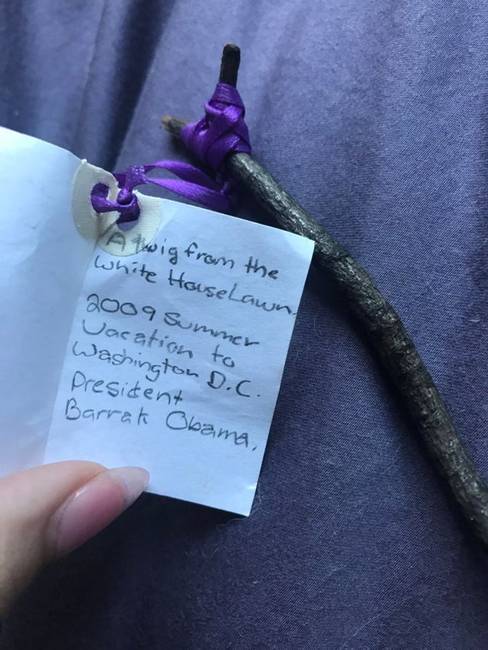 A twig from the
White House Lawn.
2009 Summer
Vacation to
Washington D.C.
President
Barrak Obama,